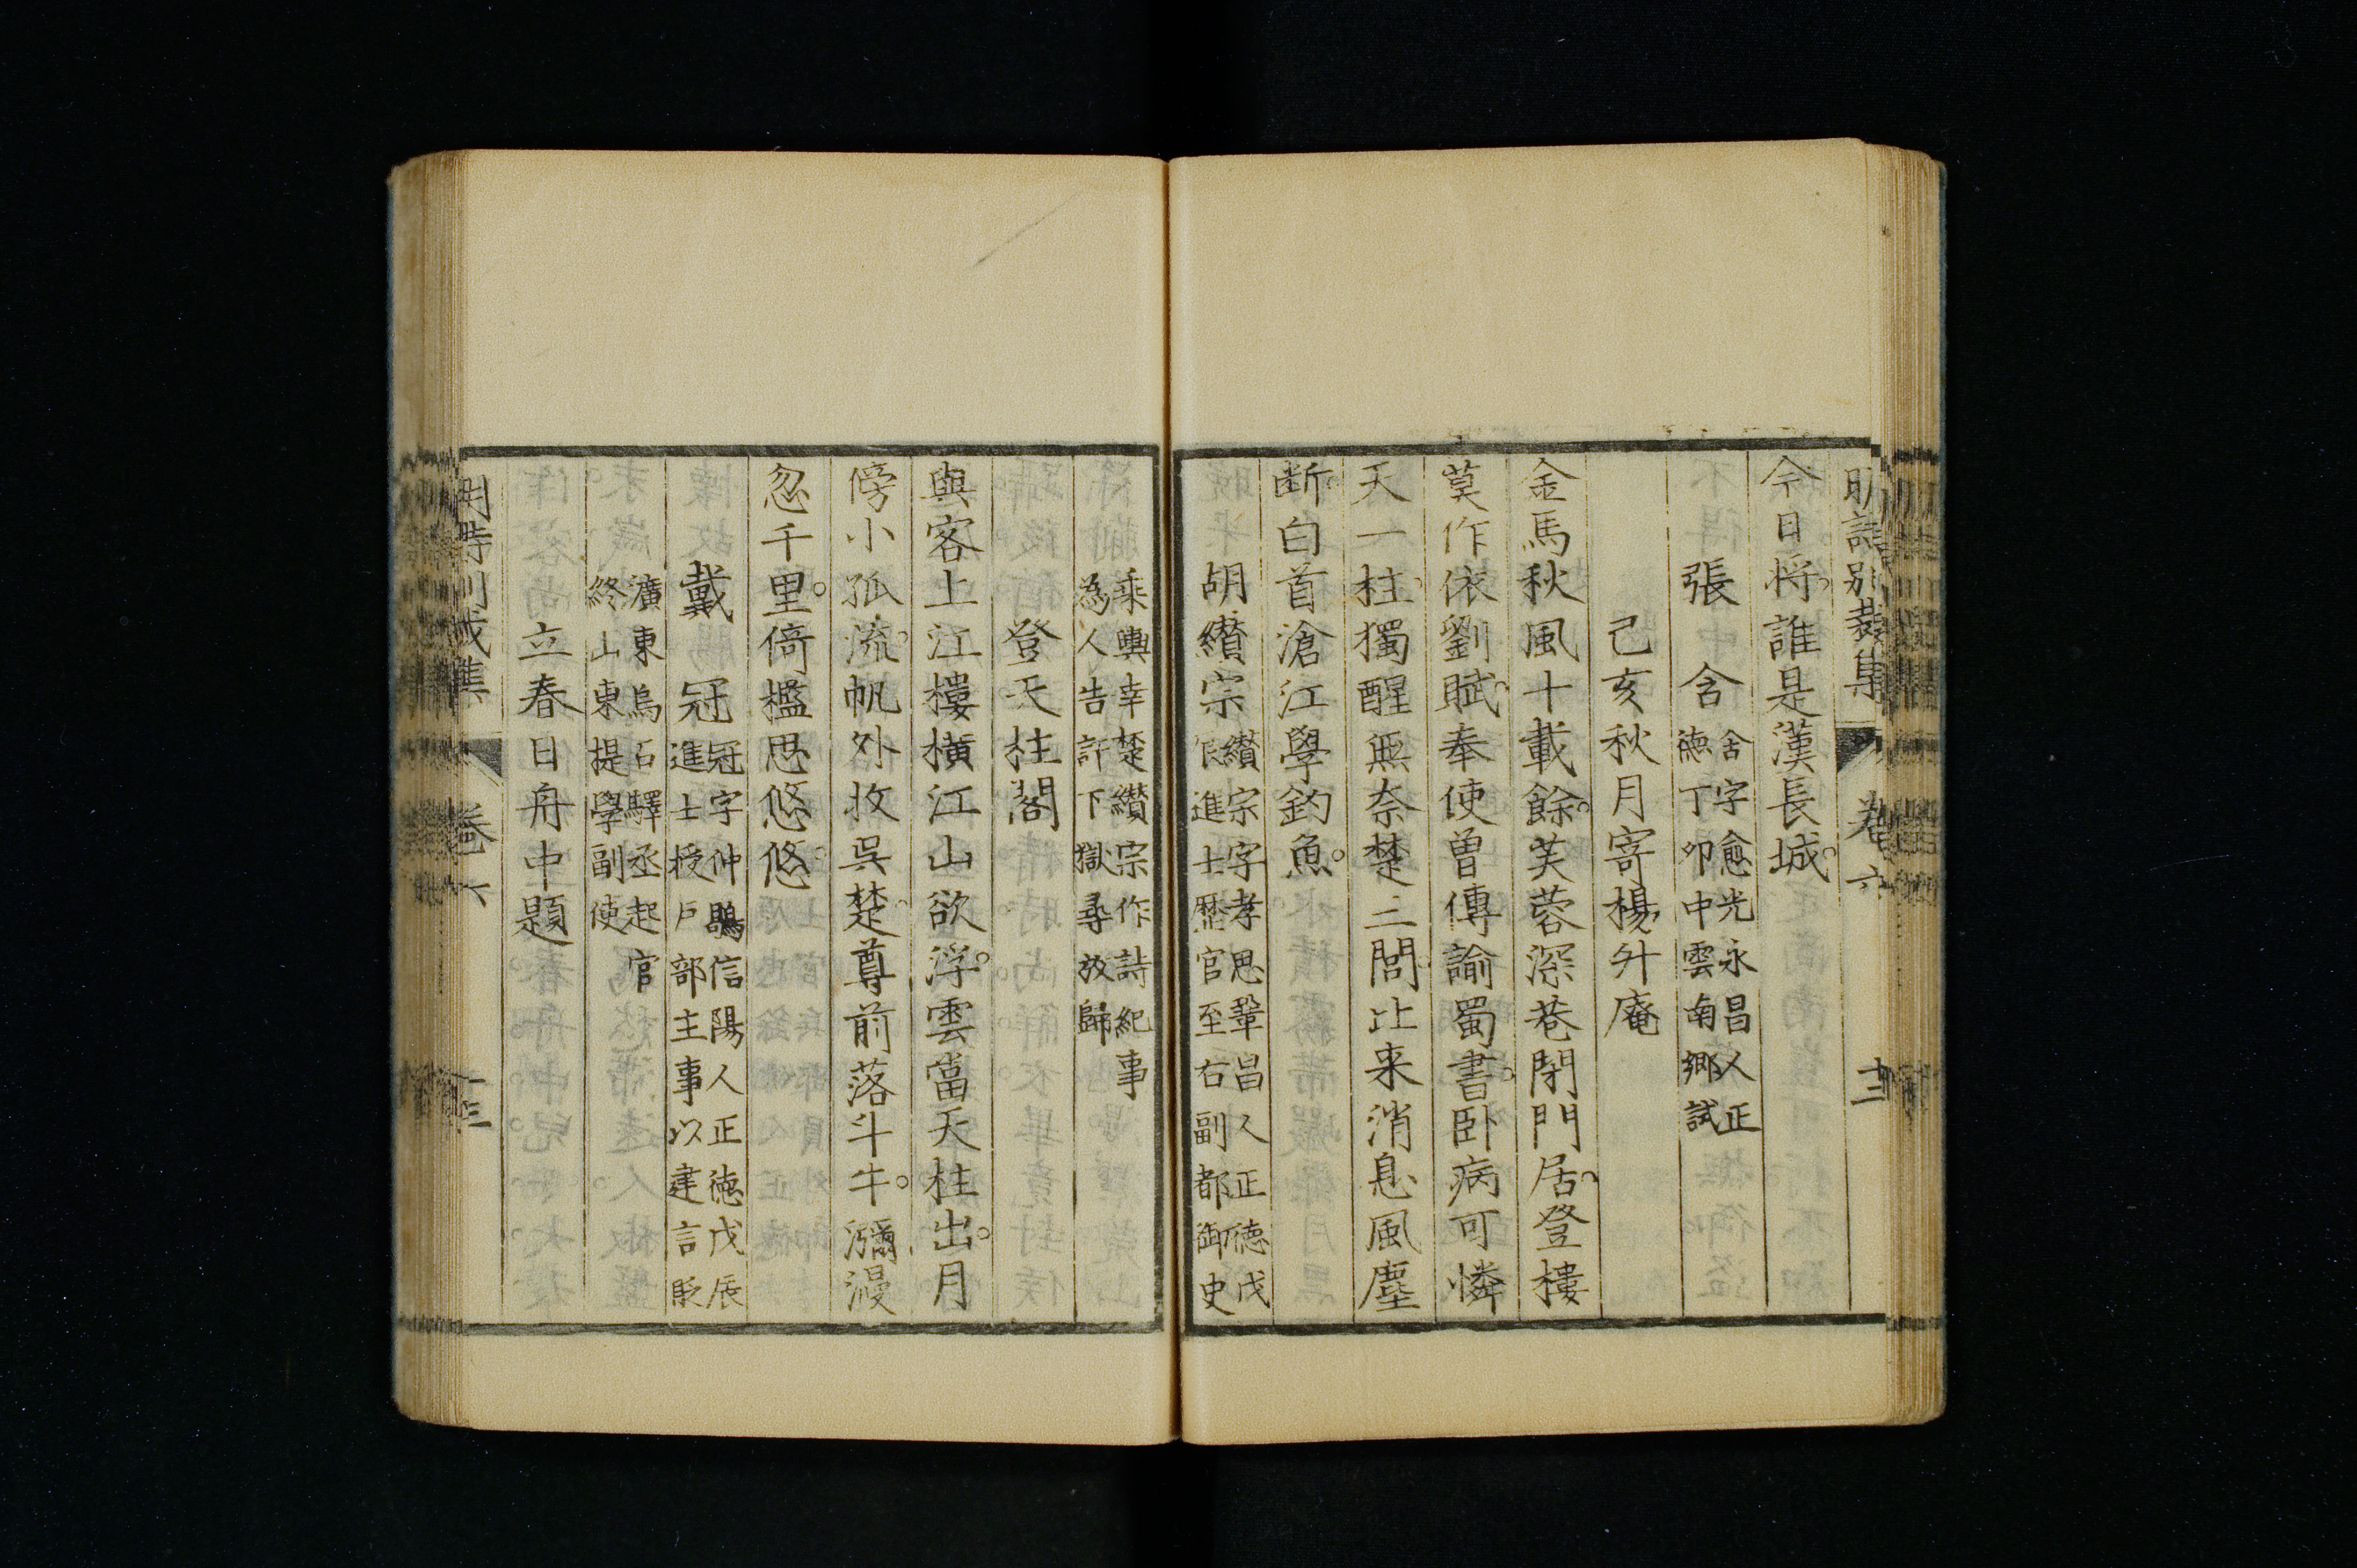 明詩別裁集 卷六 十三
今日將誰是漢長城
張 含 含字愈光永昌人正
德丁卯中雲南鄉試
己亥秋月寄楊升庵
金馬秋風十載餘芙蓉深巷閉門居登樓
莫作依劉賦奉使曾傳諭蜀書臥病可憐
天一柱獨醒無奈楚三閭比来消息風塵
斷白首滄江學釣魚
胡纘宗 纘宗字孝思鞏昌人正德戊
辰進士歷官至右副都御史
乘輿幸楚纘宗作詩紀事
為人告訐下獄尋放歸
登天柱閣
與客上江樓橫江山欲浮雲當天柱出月
傍小孤流帆外收吳楚尊前落斗牛瀰漫
忽千里倚檻思悠悠
戴 冠 冠字仲鶡信陽人正德戊辰
進士授戶部主事以建言貶
廣東烏石驛丞起官
終山東提學副使
立春日舟中題
明詩別裁集 卷六 十三